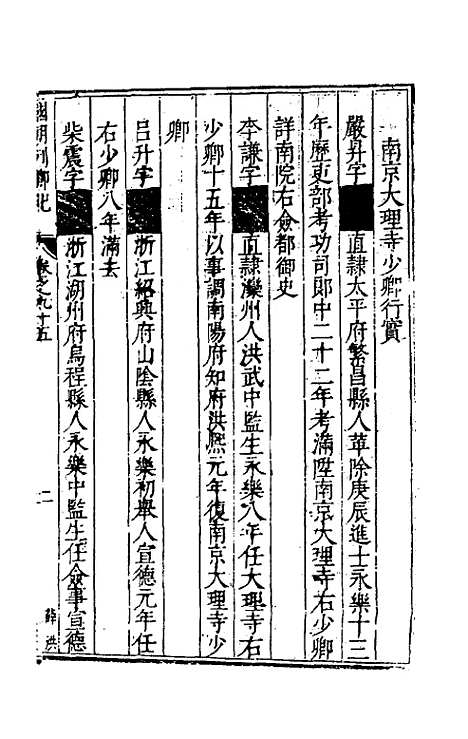 南京大理寺少卿行實
嚴升字■直隸太平府繁昌縣人革除庚辰進士永樂十三
年歷吏部考功司郎中二十二年考滿陞南京大理寺右少卿
詳南院右僉都御史
李謙字■直隸灤州人洪武中監生永樂八年任大理寺右
少卿十五年以事調南陽府知府洪熙元年復南京大理寺少
卿
呂升字■浙江紹興府山陰縣人永樂初舉人宣德元年任
右少卿八年滿去
柴震字■浙江湖州府烏程縣人永樂中監生任僉事宣德
國朝列卿紀 卷之九十五 二 薛洪